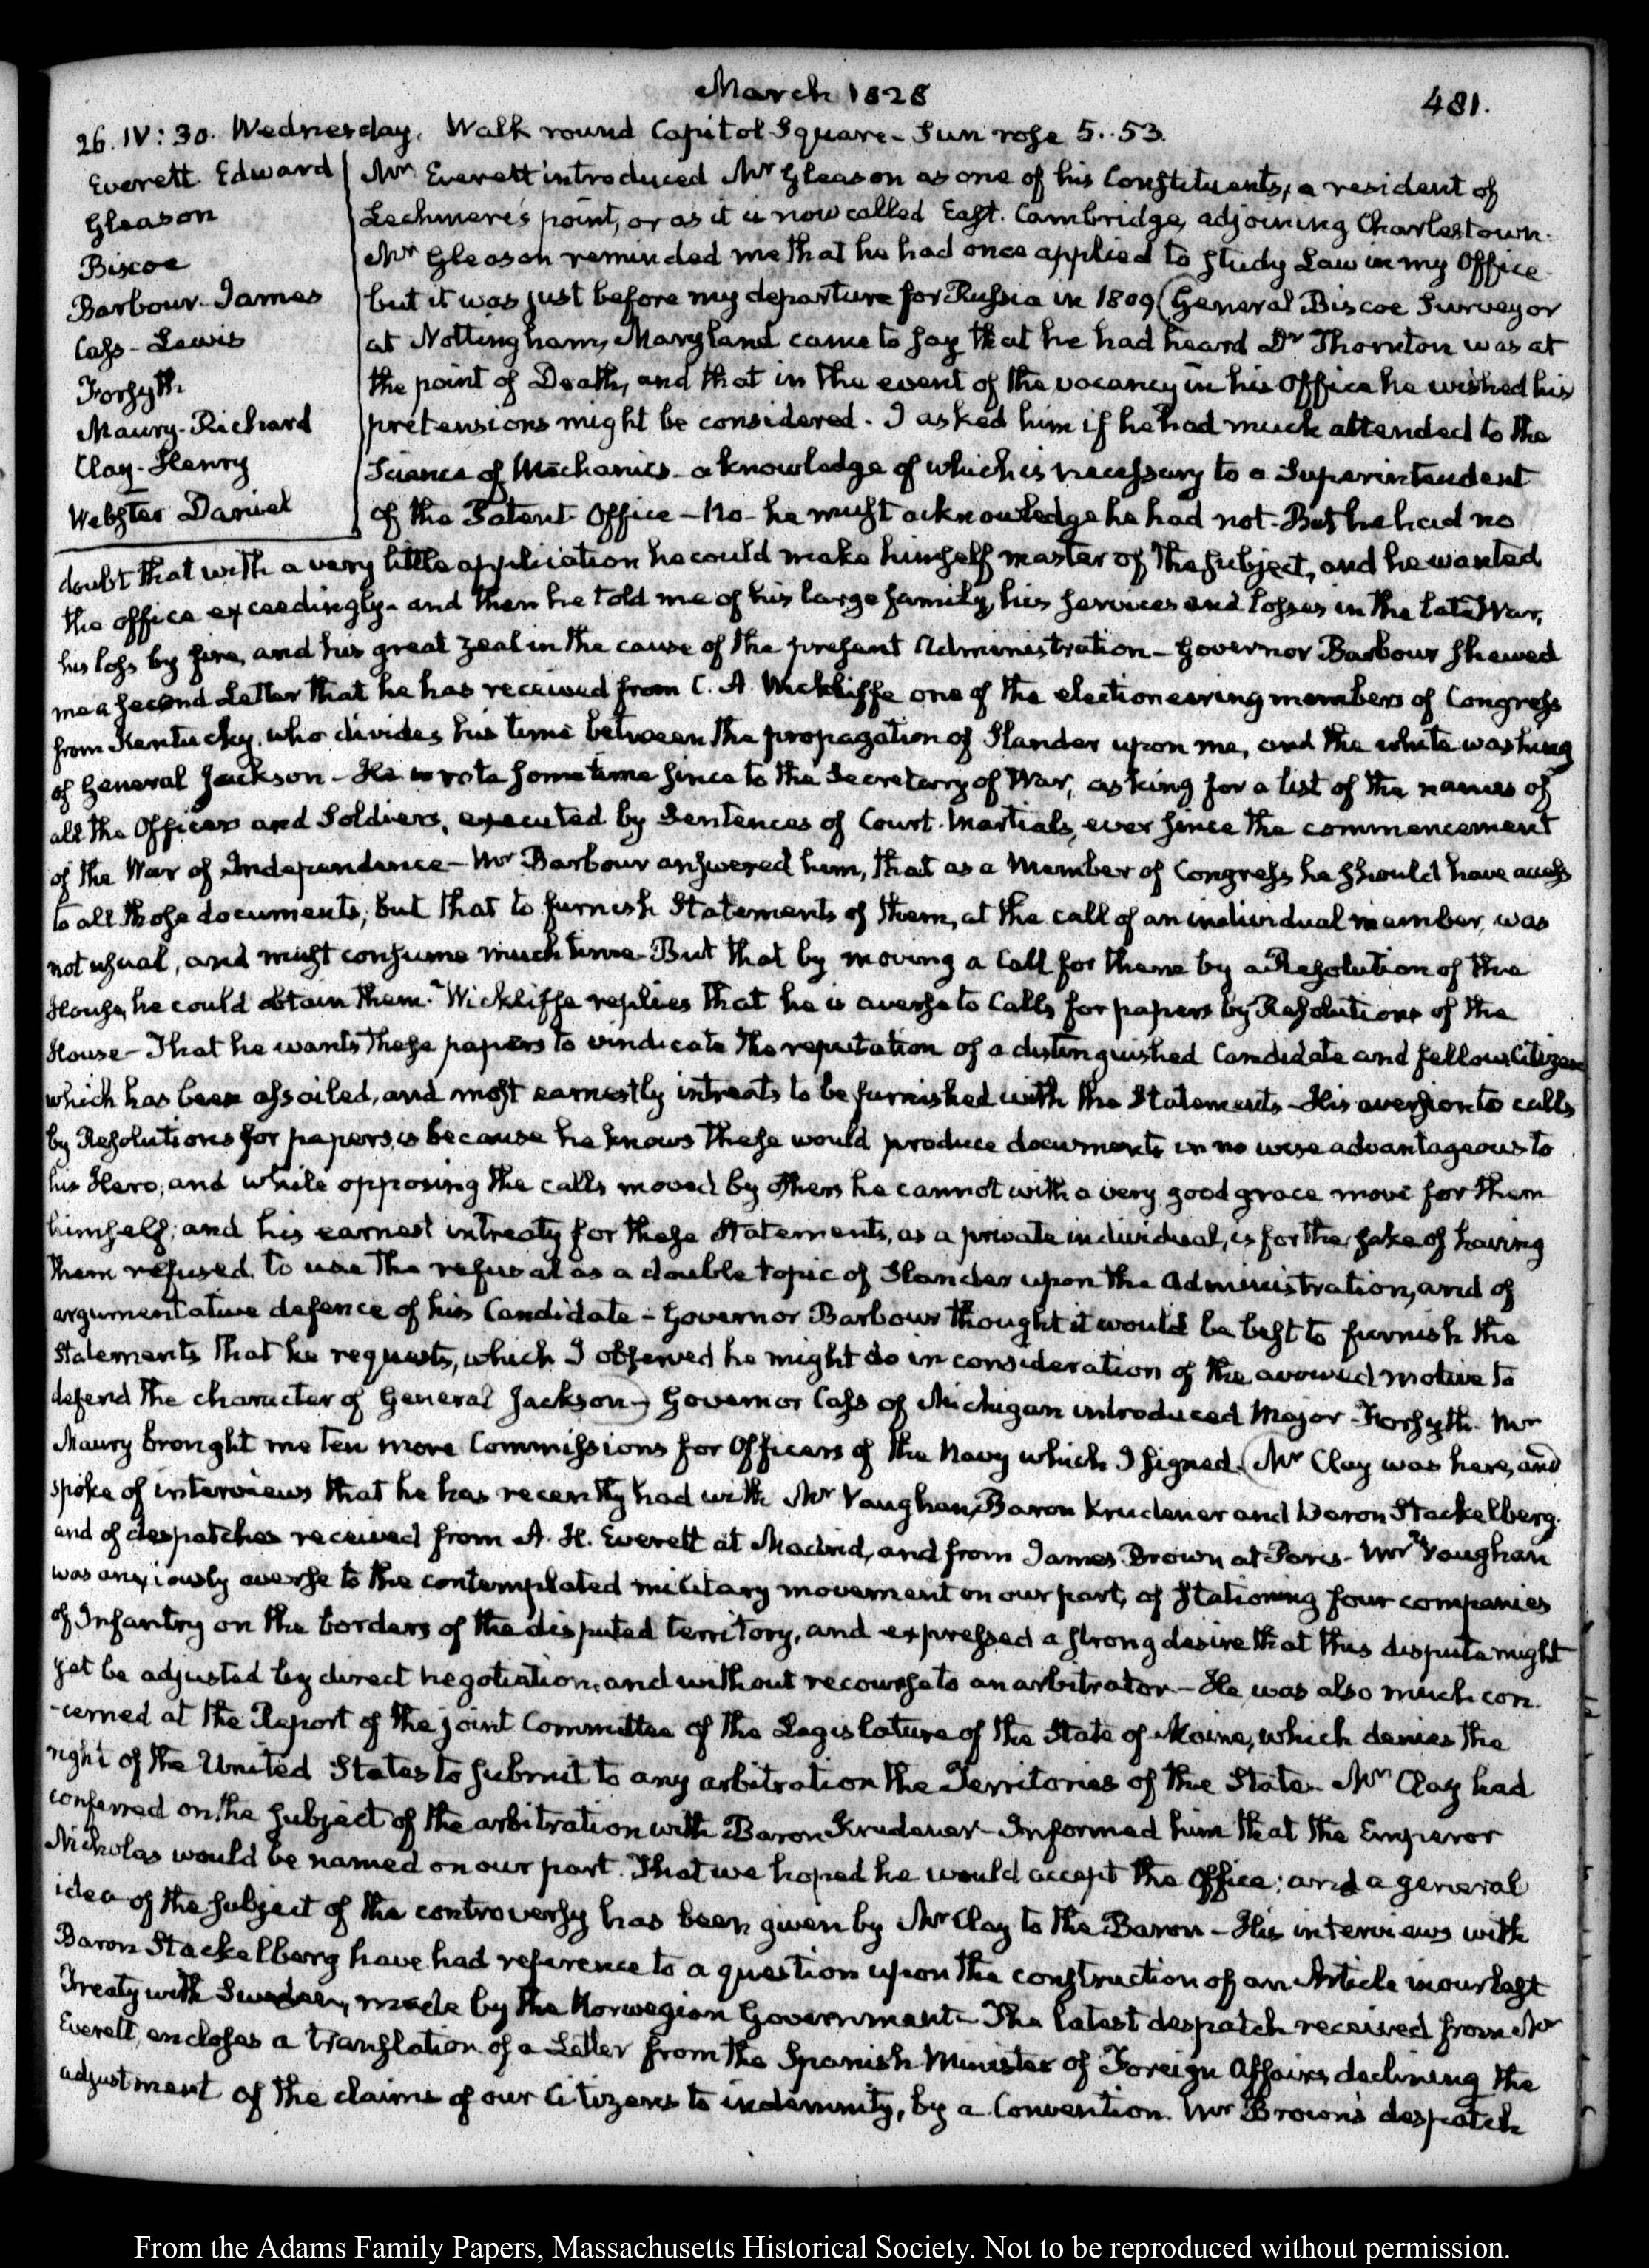 March 1828
481.
26. IV: 30. Wednesday. Walk round Capitol Square - Sun rose 5..53.
Everett Edward
Gleason
Biscoe
Barbour. James
Cass - Lewis
Forsyth
Maury - Richard
Clay - Henry
Webster Daniel
Mr Everett introduced Mr Gleason as one of his Constituents, a resident of
Lechmere's point, or as it is now called East. Cambridge, adjoining Charlestown.
Mr Gleason reminded me that he had once applied to study Law in my Office
but it was just before my departure for Russia in 1809 (General Biscoe Surveyor
at Nottingham, Maryland came to say that he had heard Dr Thornton was at
the point of Death, and that in the event of the vacancy in his Office he wished his
pretensions might be considered. I asked him if he had much attended to the
Science of Mechanics - a knowledge of which is necessary to a Superintendent
of the Patent Office - No - he must acknowledge he had not - But he had no
doubt that with a very little application he could make himself master of the subject, and he wanted
the office exceedingly - and then he told me of his large family, his services and losses in the late War,
his loss by fire, and his great zeal in the cause of the present Administration - Governor Barbour shewed
me a second Letter that he has received from C. A. Wickliffe one of the electioneering members of Congress
from Kentucky, who divides his time between the propagation of Slander upon me, and the white washing
of General Jackson - He wrote sometime since to the Secretary of War, asking for a list of the names of
all the Officers and Soldiers, executed by Sentences of Court. Martials, ever since the commencement
of the War of Independence - Mr Barbour answered him, that as a Member of Congress he should have access
to all those documents; but that to furnish Statements of them, at the call of an individual member, was
not usual, and must consume much time - But that by moving a Call for them by a Resolution of the
House, he could obtain them. Wickliffe replies that he is averse to Calls for papers by Resolutions of the
House - That he wants these papers to vindicate the reputation of a distinguished Candidate and fellow Citizen
which has been assailed, and most earnestly intreats to be furnished with the Statements - His aversion to calls
by Resolutions for papers, is because he knows these would produce documents in no wise advantageous to
his Hero; and while opposing the calls moved by others he cannot with a very good grace move for them
himself; and his earnest intreaty for these Statements, as a private individual, is for the sake of having
them refused, to use the refusal as a double topic of Slander upon the Administration, and of
argumentative defence of his Candidate - Governor Barbour thought it would be best to furnish the
Statements that he requests, which I observed he might do in consideration of the avowed motive to
defend the character of General Jackson -) Governor Cass of Michigan introduced Major Forsyth. Mr
Maury brought me ten more Commissions for Officers of the Navy which I signed. (Mr Clay was here, and
spoke of interviews that he has recently had with Mr Vaughan, Baron Krudener and Baron Stackelberg.
and of despatches received from A. H. Everett at Madrid, and from James Brown at Paris - Mr Vaughan
was anxiously averse to the contemplated military movement on our part, of stationing four companies
of Infantry on the borders of the disputed territory, and expressed a strong desire that this dispute might
yet be adjusted by direct negotiation, and without recourse to an arbitrator - He was also much con-
-cerned at the Report of the joint Committee of the Legislature of the State of Maine, which denies the
right of the United States to submit to any arbitration the Territories of the State. Mr Clay had
conferred on the subject of the arbitration with Baron Krudener - Informed him that the Emperor
Nicholas would be named on our part. That we hoped he would accept the Office; and a general
idea of the subject of the controversy has been given by Mr Clay to the Baron - His interviews with
Baron Stackelberg have had reference to a question upon the construction of an Article in our last
Treaty with Sweden, made by the Norwegian Government - The latest despatch received from Mr
Everett, encloses a translation of a Letter from the Spanish Minister of Foreign Affairs, declining the
adjustment of the claims of our Citizens to indemnity, by a Convention. Mr Brown's despatch
From the Adams Family Papers, Massachusetts Historical Society. Not to be reproduced without permission.